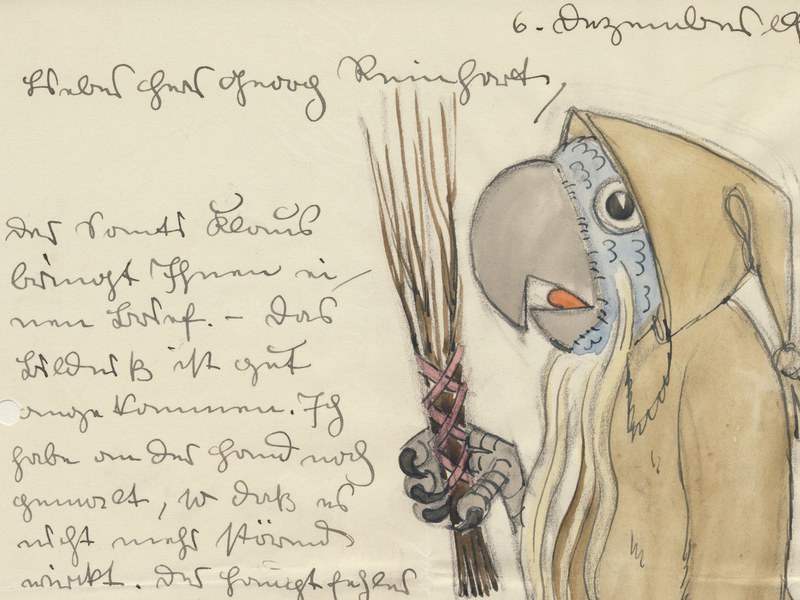 6. Dezember 19
Lieber Herr Georg Reinhart,
der Sankt Klaus
bringt Ihnen ei-
nen Brief. – Das
Bildniß ist gut
ange kommen. Ich
habe an der Hand noch
gemalt, so daß es
nicht mehr störend
wirkt. Der Hauptfehler